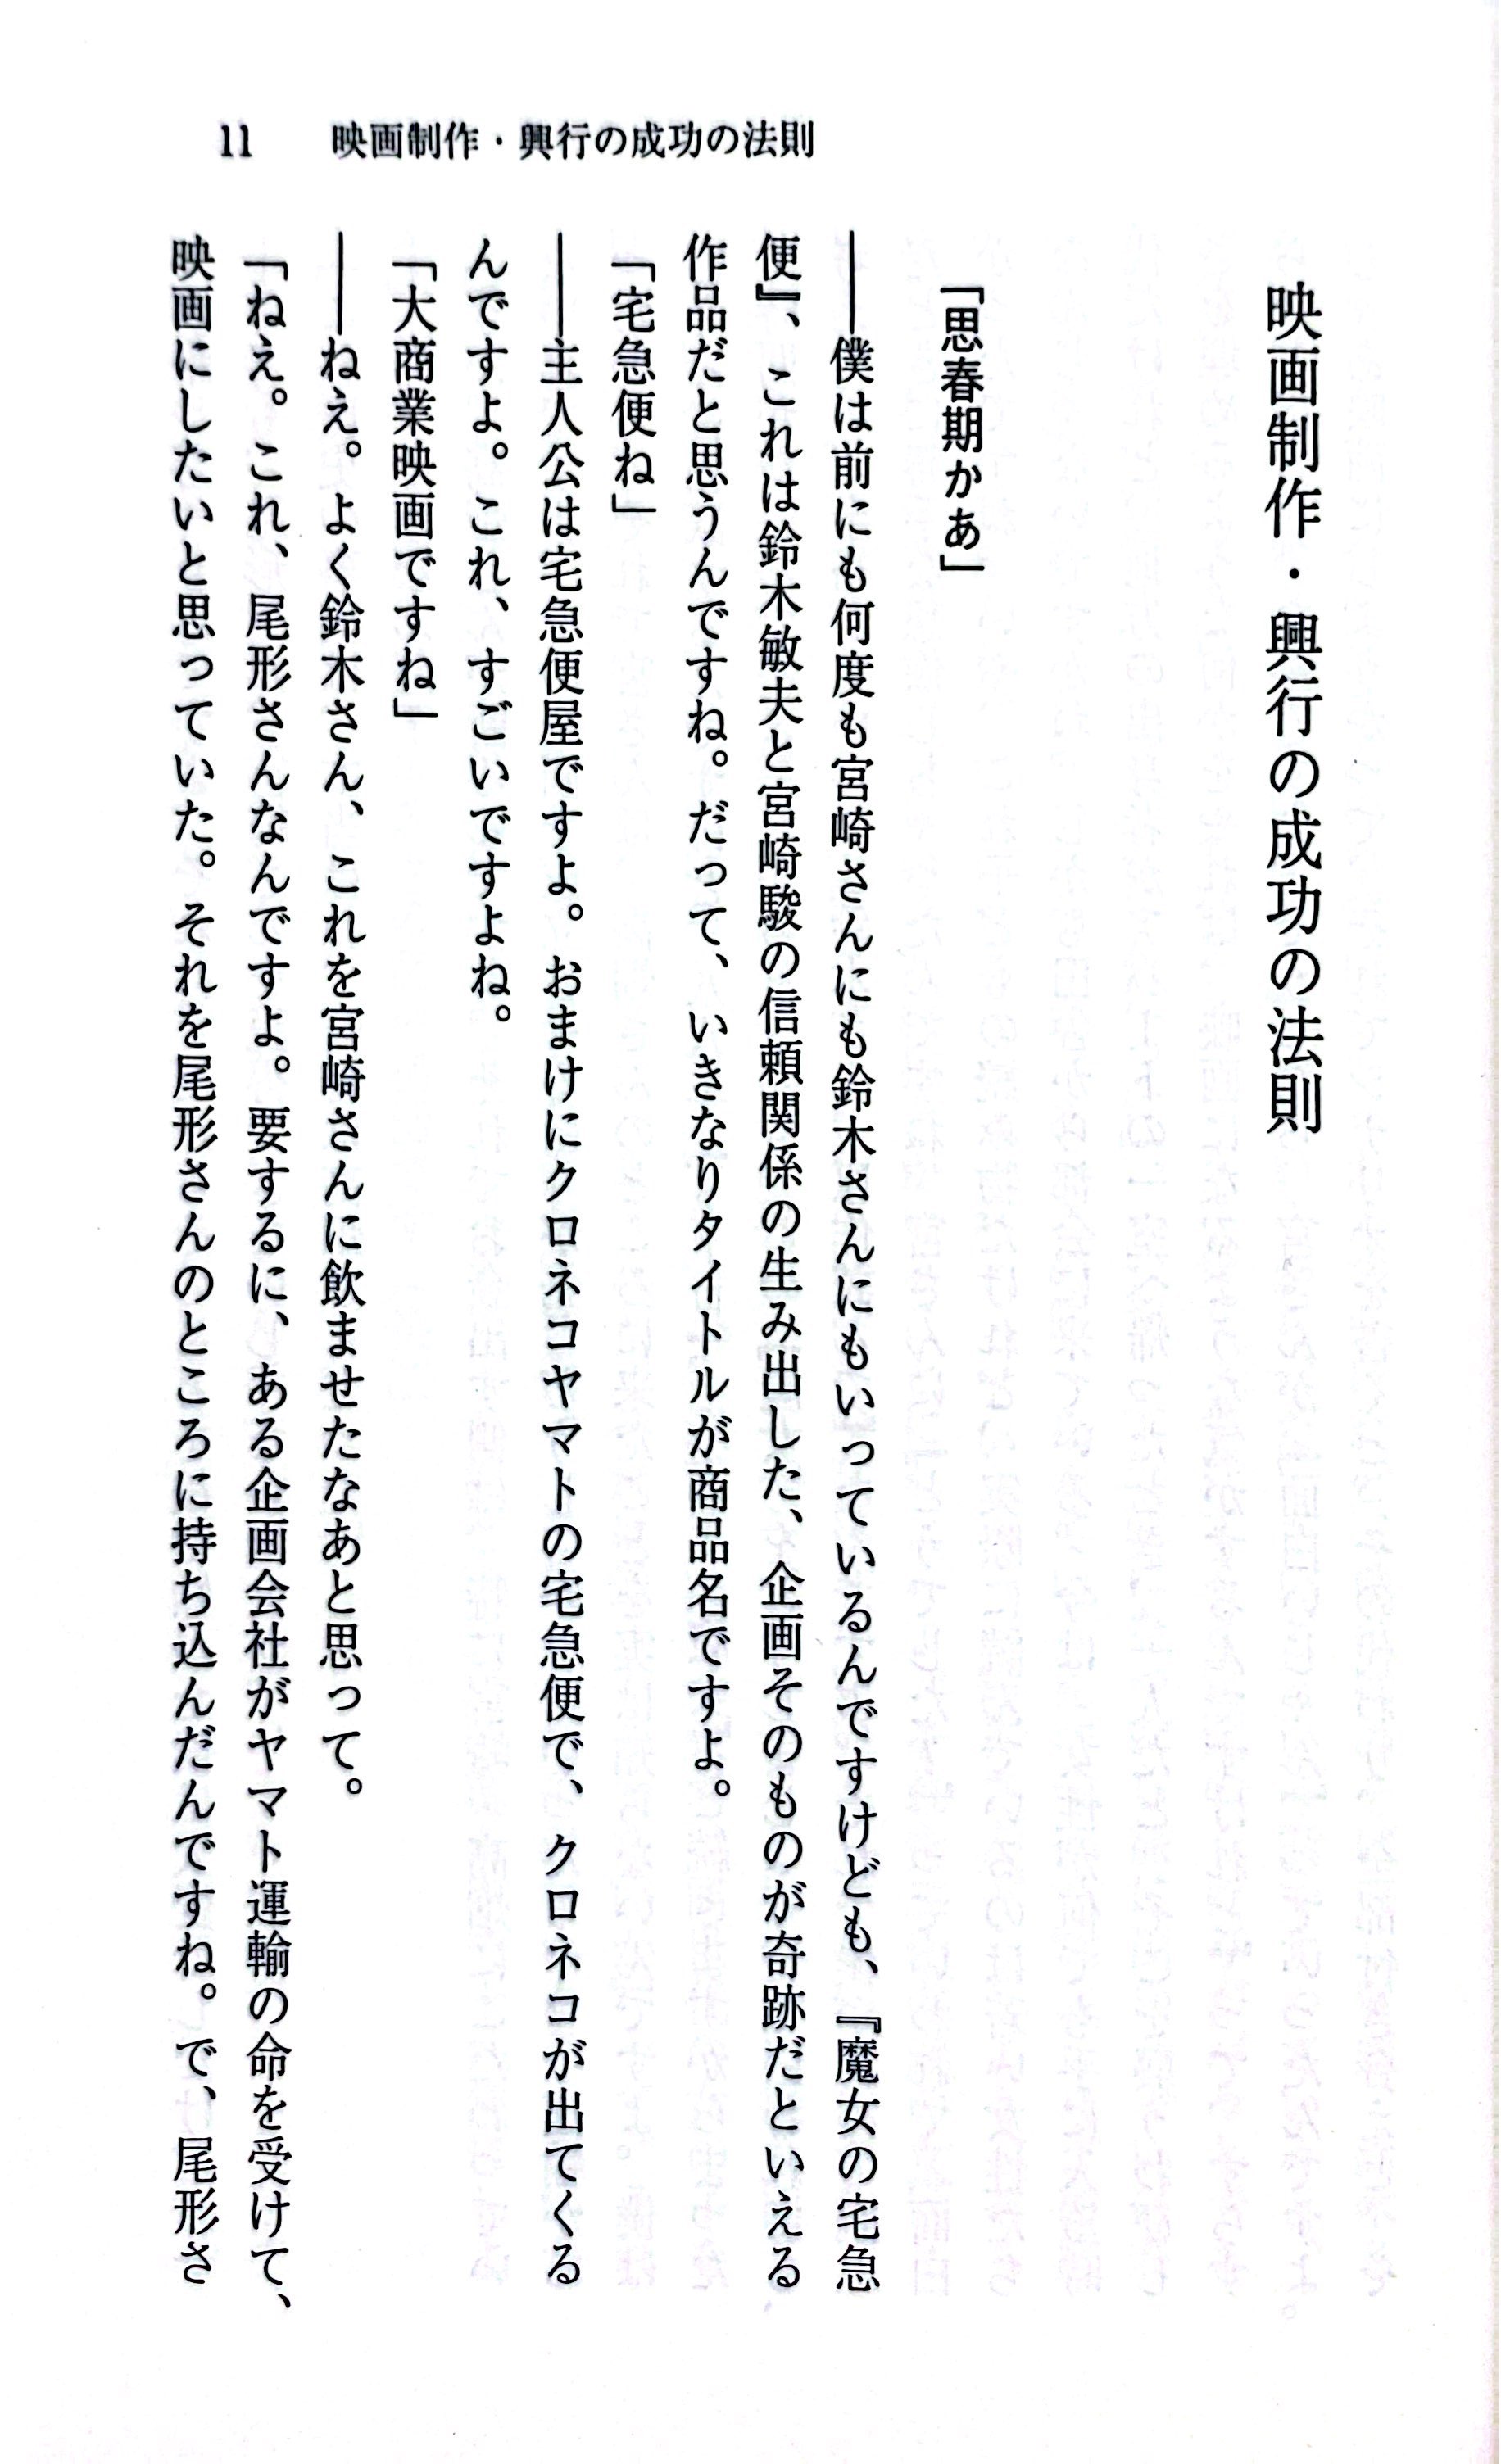 11 映画制作・興行の成功の法則
映画制作・興行の成功の法則
「思春期かあ」
――僕は前にも何度も宮崎さんにも鈴木さんにもいっているんですけども、『魔女の宅急
便』、これは鈴木敏夫と宮崎駿の信頼関係の生み出した、企画そのものが奇跡だといえる
作品だと思うんですね。だって、いきなりタイトルが商品名ですよ。
「宅急便ね」
――主人公は宅急便屋ですよ。おまけにクロネコヤマトの宅急便で、クロネコが出てくる
んですよ。これ、すごいですよね。
「大商業映画ですね」
――ねえ。よく鈴木さん、これを宮崎さんに飲ませたなあと思って。
「ねえ。これ、尾形さんなんですよ。要するに、ある企画会社がヤマト運輸の命を受けて、
映画にしたいと思っていた。それを尾形さんのところに持ち込んだんですね。で、尾形さ